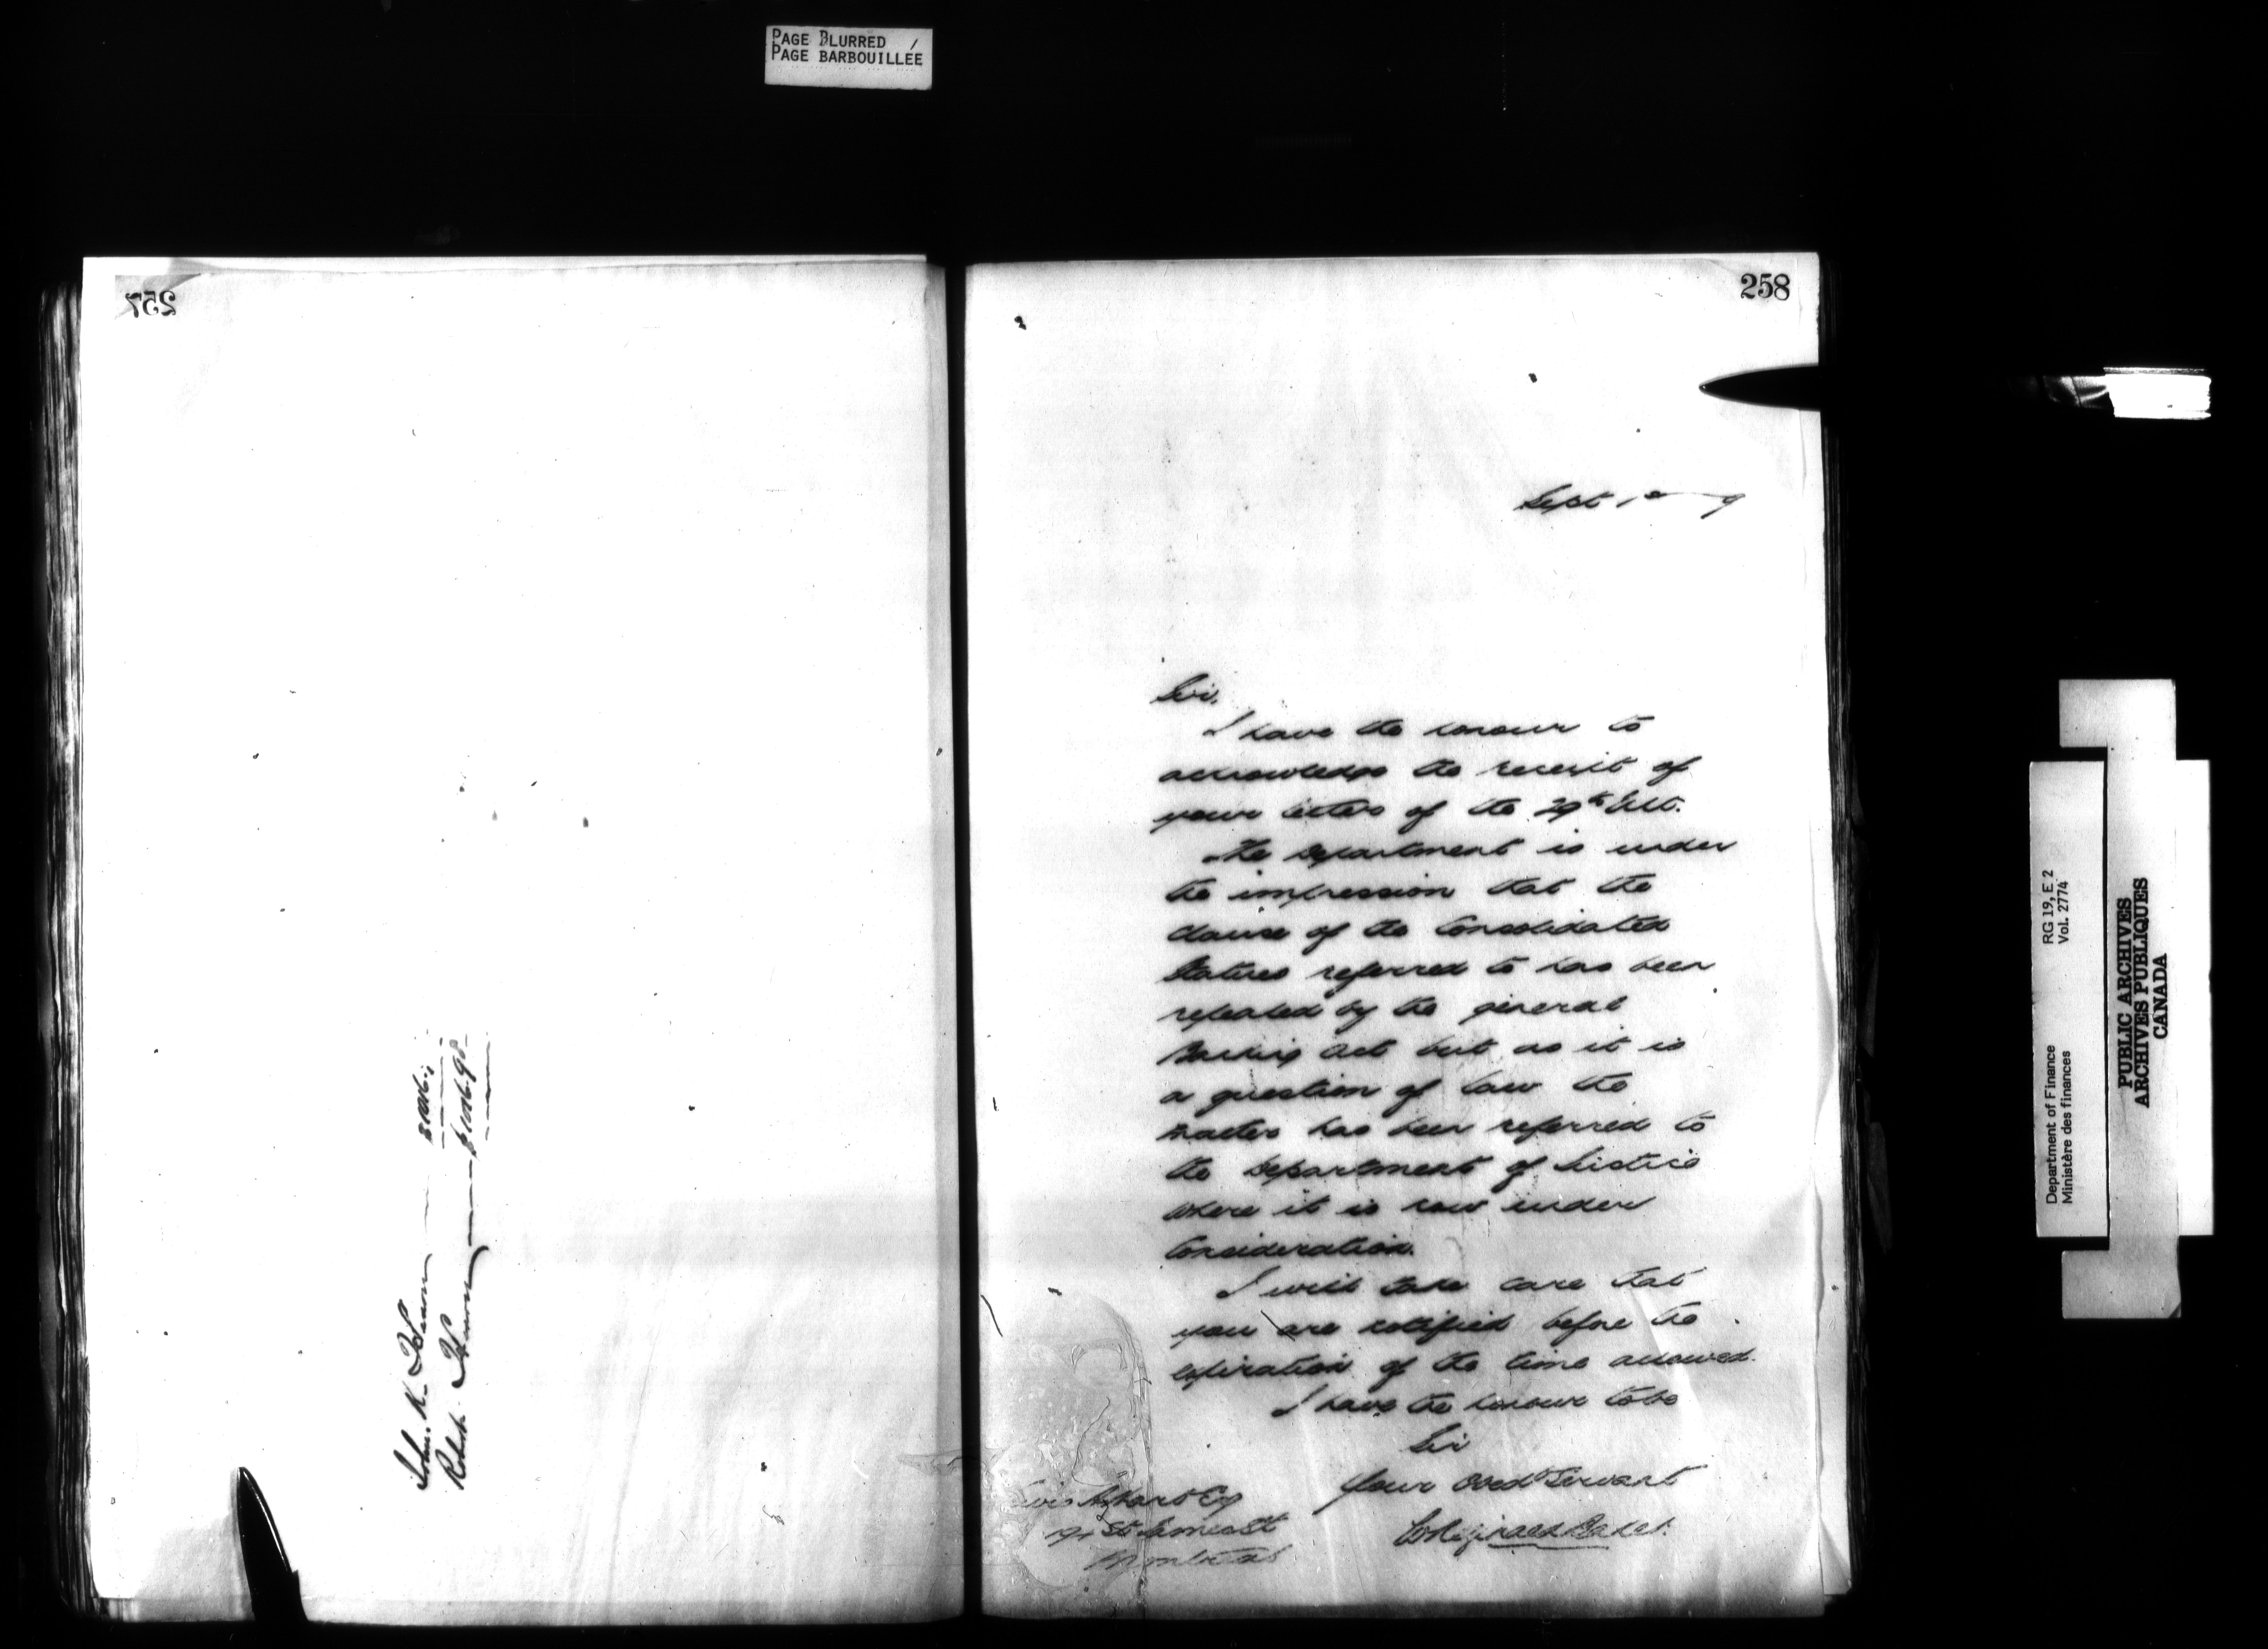 PAGE BLURRED
PAGE BARBOUILLÉE
257
John. K. 
Robt.
258
Sept 1st 9
Sir,
I have the honour to
acknowledge the receipt of
your letter of the 29th Ult.
The Department is under
the impression that the
clause of the Consolidated
Statutes referred to has been
repealed by the general
Banking Act but as it is
a question of law the
matter has been referred to
the Department of Justice
where it is now under
Consideration.
I will take care that
you are notified before the
expiration of the time allowed.
I have the honour to be
Sir
Your Obedt Servant
Reginald Baker.
Hart Esq
St James St
Montreal
Department of Finance RG 19, E 2
Ministère des finances Vol. 2774
PUBLIC ARCHIVES
ARCHIVES PUBLIQUES
CANADA